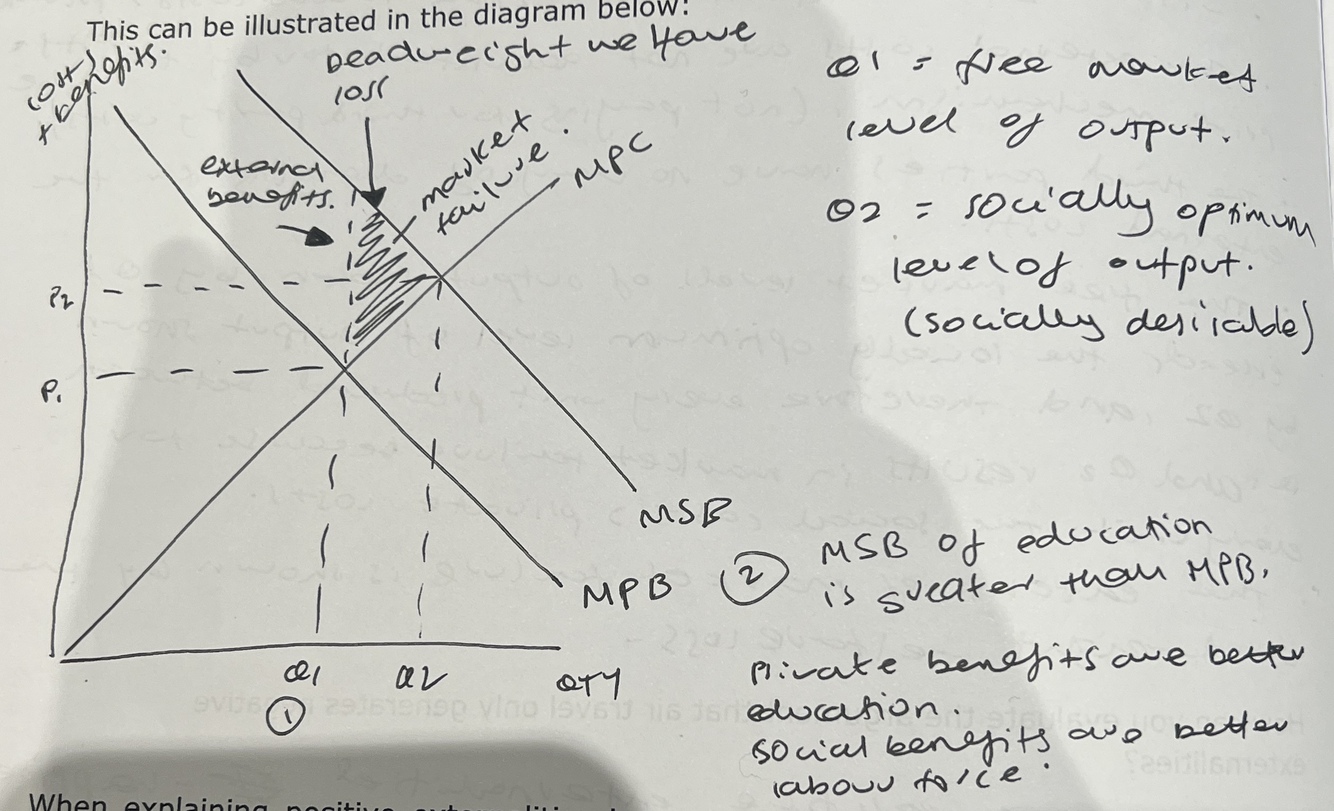 This can be illustrated in the diagram below:
cost/
+ benefits.
Deadweight we Have
loss
external
benefits.
market
failure.
MPC
P2
P1
MSB
MPB
Q1
Q2
QTY
1
Q1 = free market
level of output.
Q2 = socially optimum
level of output.
(socially desirable)
2
MSB of education
is greater than MPB.
Private benefits are better
education.
social benefits are better
labour force.
When explaining positive